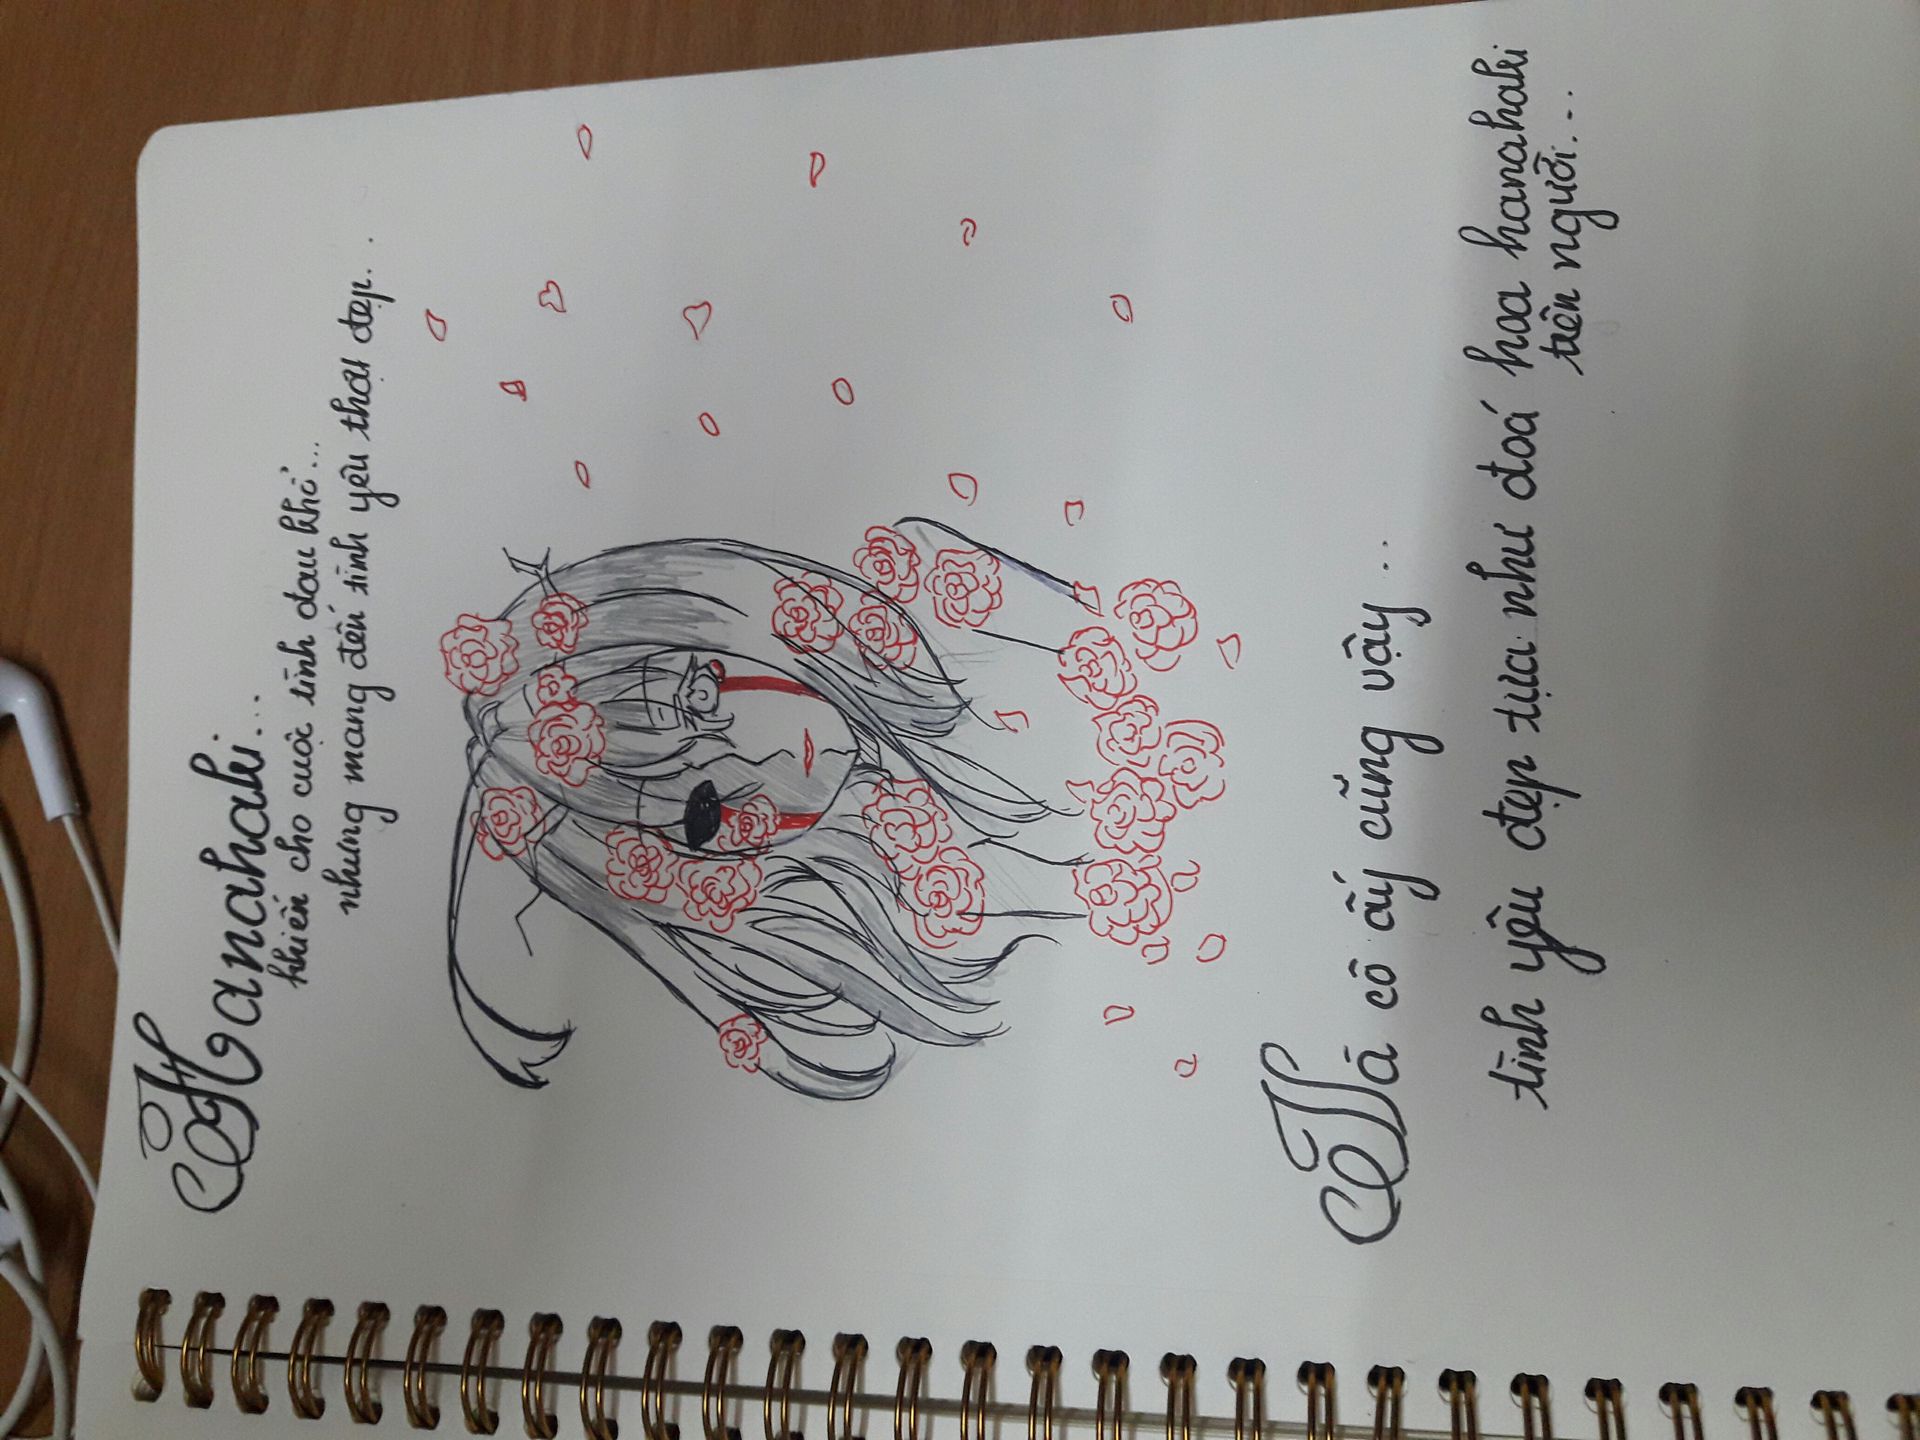 Hanahaki...
khiến cho cuộc tình đau khổ...
nhưng mang đến tình yêu thật đẹp..
Và cô ấy cũng vậy...
tình yêu đẹp tựa như đoá hoa hanahaki
trên người...